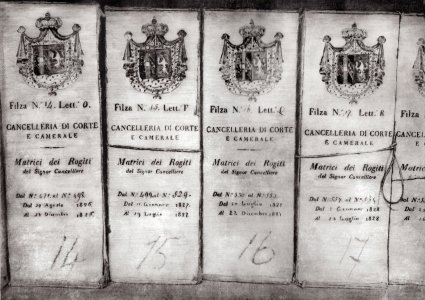 Filza N. 14. Lett. O.
CANCELLERIA DI CORTE
E CAMERALE
Matrici dei Rogiti
del Signor Cancelliere
Dal N.° 471. al N.° 498.
Dal 29 Agosto 1826.
Al 1826.
14
Filza N. 15. Lett. P
CANCELLERIA DI CORTE
E CAMERALE
Matrici dei Rogiti
del Signor Cancelliere
Dal N.° 499. al N.° 529.
Dal Gennaro 1827.
Al 19 Luglio 1827.
15
Filza N. 16. Lett. Q
CANCELLERIA DI CORTE
E CAMERALE
Matrici dei Rogiti
del Signor Cancelliere
Dal N.° 530. al N.° 553.
Dal Luglio 1827.
Al 22. Dicembre 1827.
16
Filza N. 17. Lett. R
CANCELLERIA DI CORTE
E CAMERALE
Matrici dei Rogiti
del Signor Cancelliere
Dal N.° 554. al N.°
Dal Gennaro 1828.
Al Luglio 1828.
17
Filza N.
CANCELLE
E C
Matrici
del Sig
Dal N.°